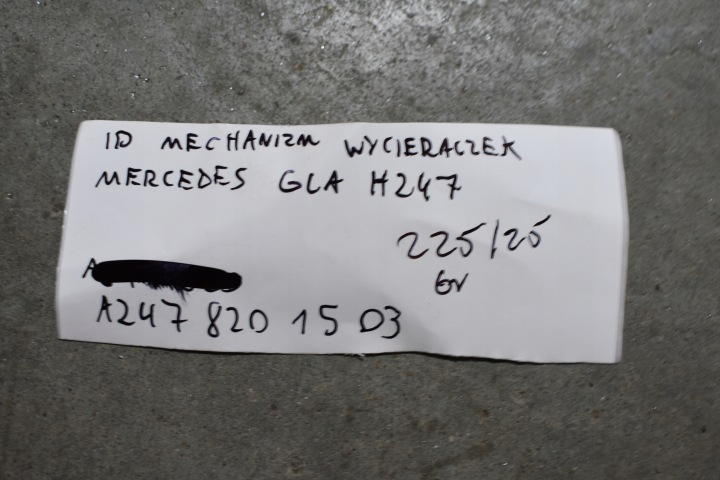 ID MECHANIZM WYCIERACZEK
MERCEDES GLA H247
225/25
A
A247 820 15 03